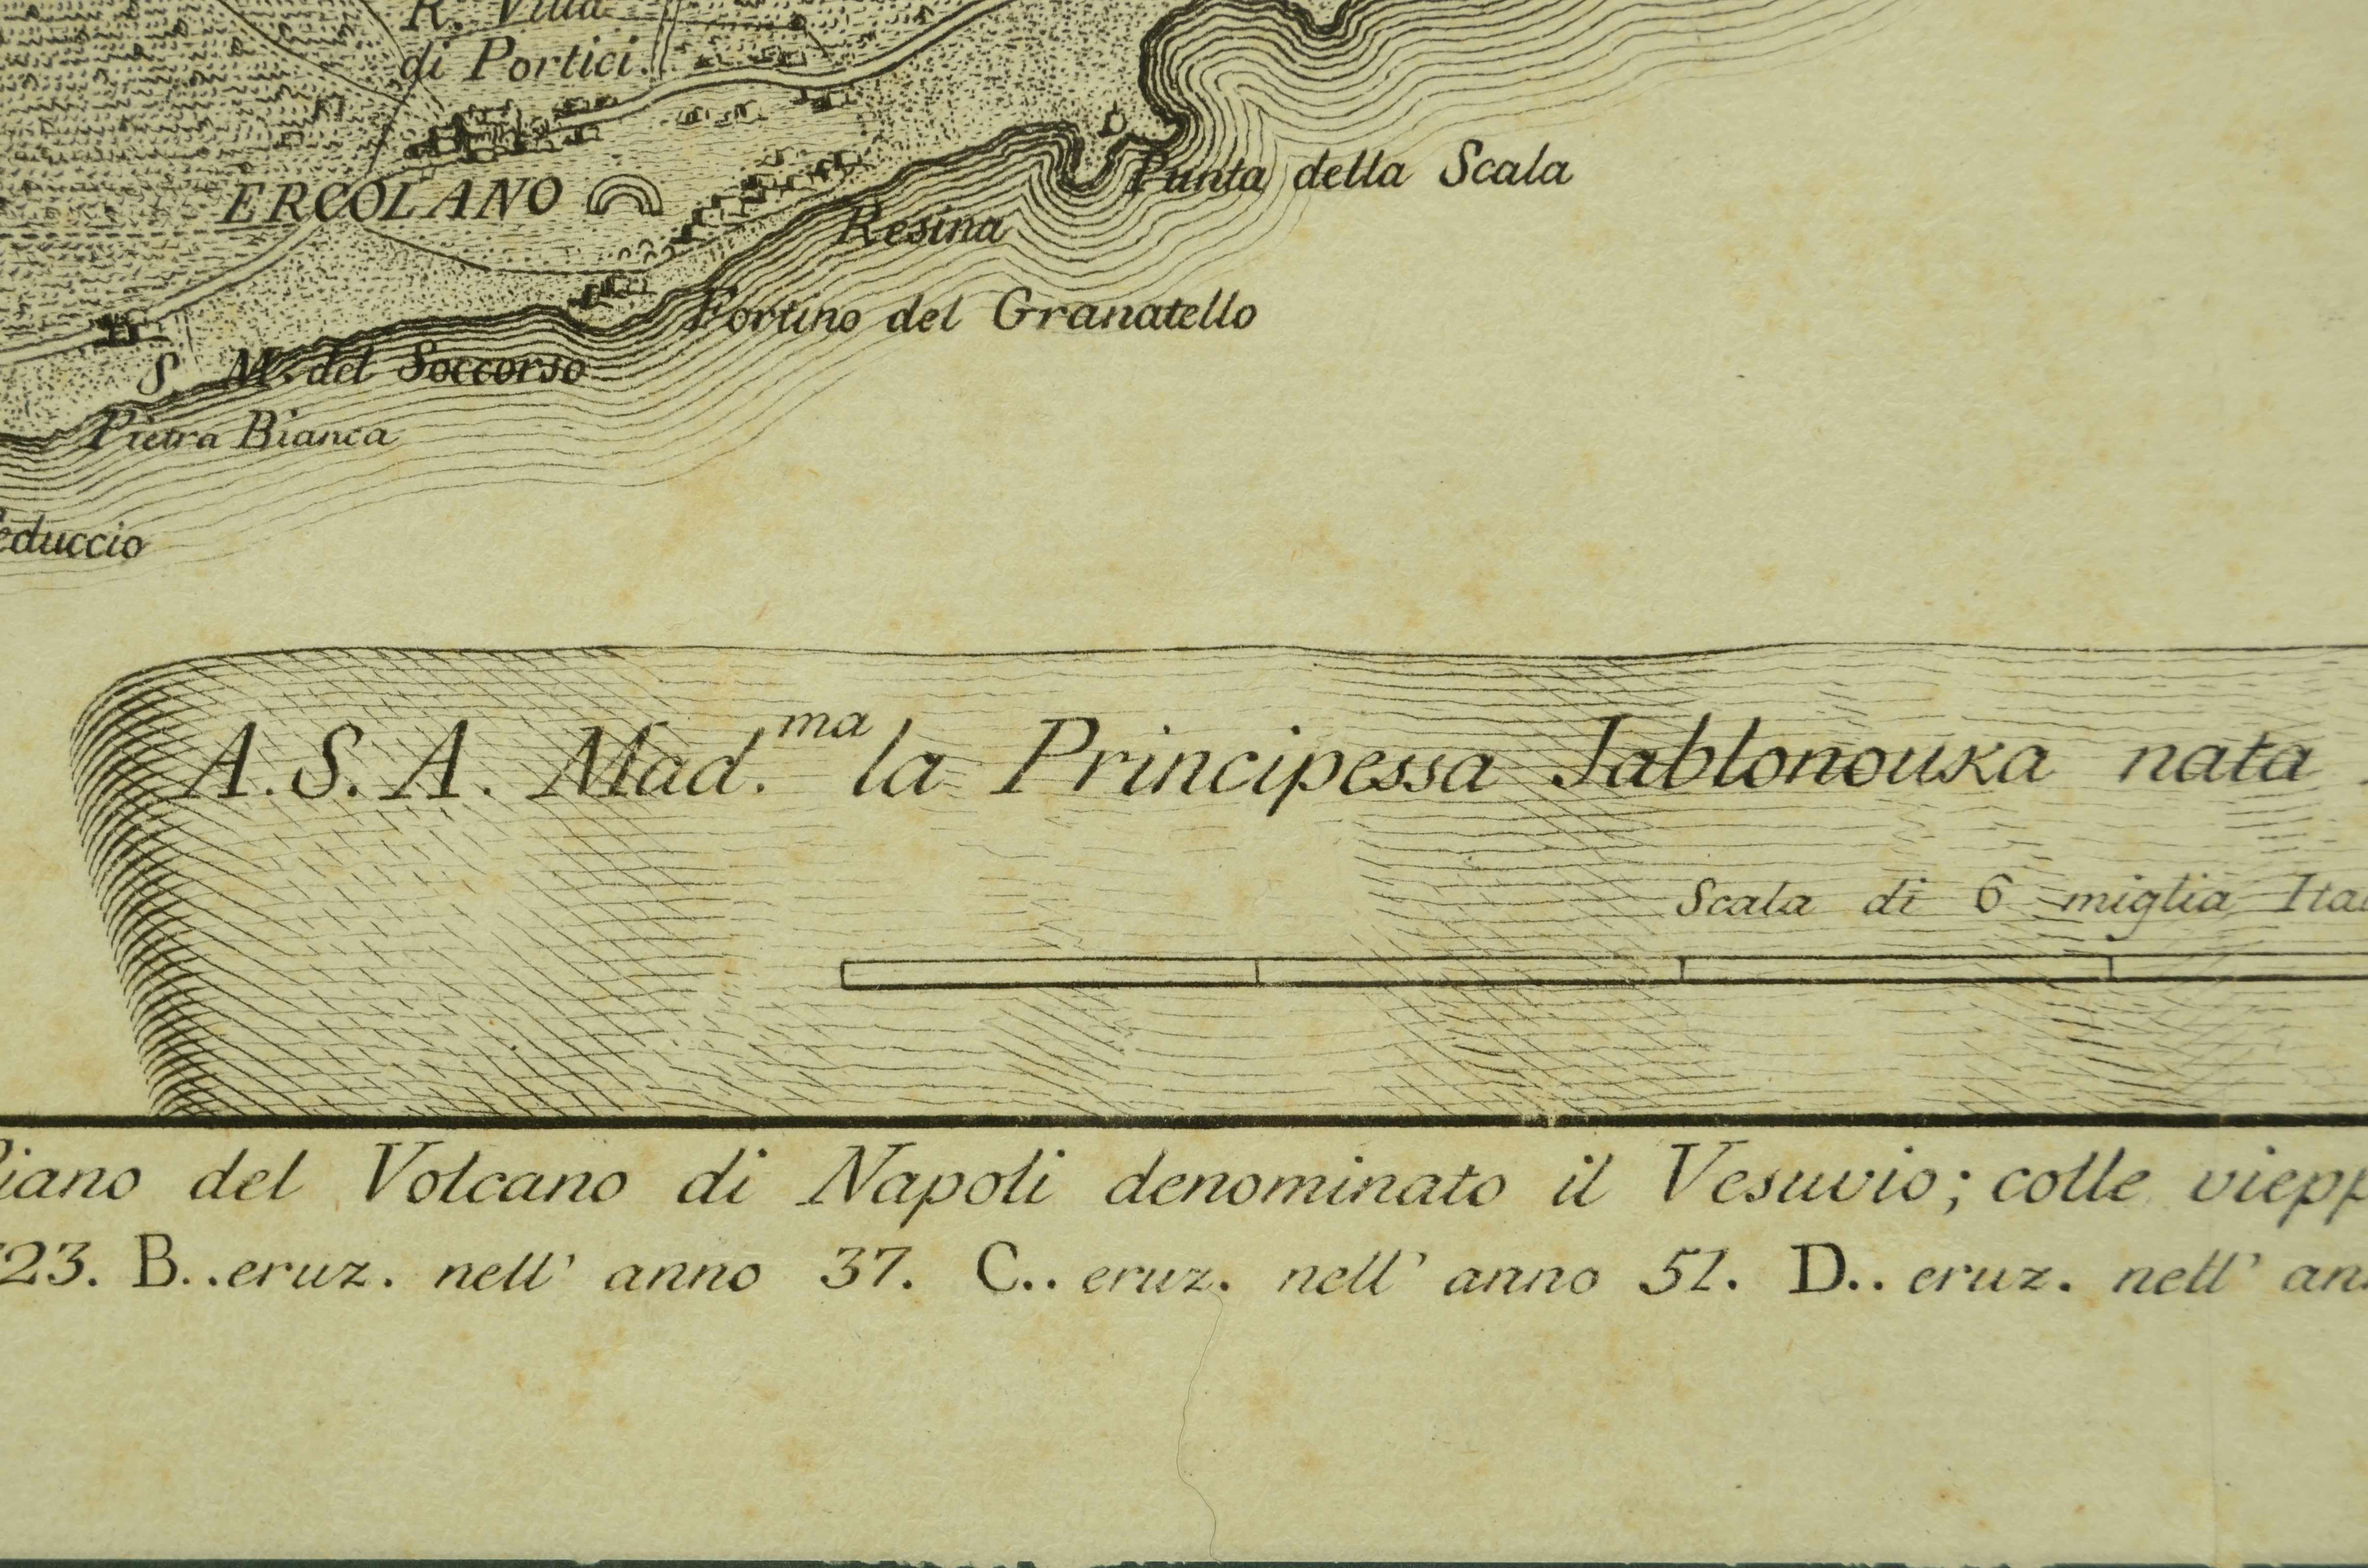 R. Villa
di Portici.
ERCOLANO
Punta della Scala
Resina
Fortino del Granatello
S. M. del Soccorso
Pietra Bianca
educcio
A. S. A. Mad.ma la Principessa Jablonouska nata
Scala di 6 miglia Ita
iano del Volcano di Napoli denominato il Vesuvio; colle viepp
23. B..eruz. nell' anno 37. C.. eruz. nell' anno 51. D.. eruz. nell' an